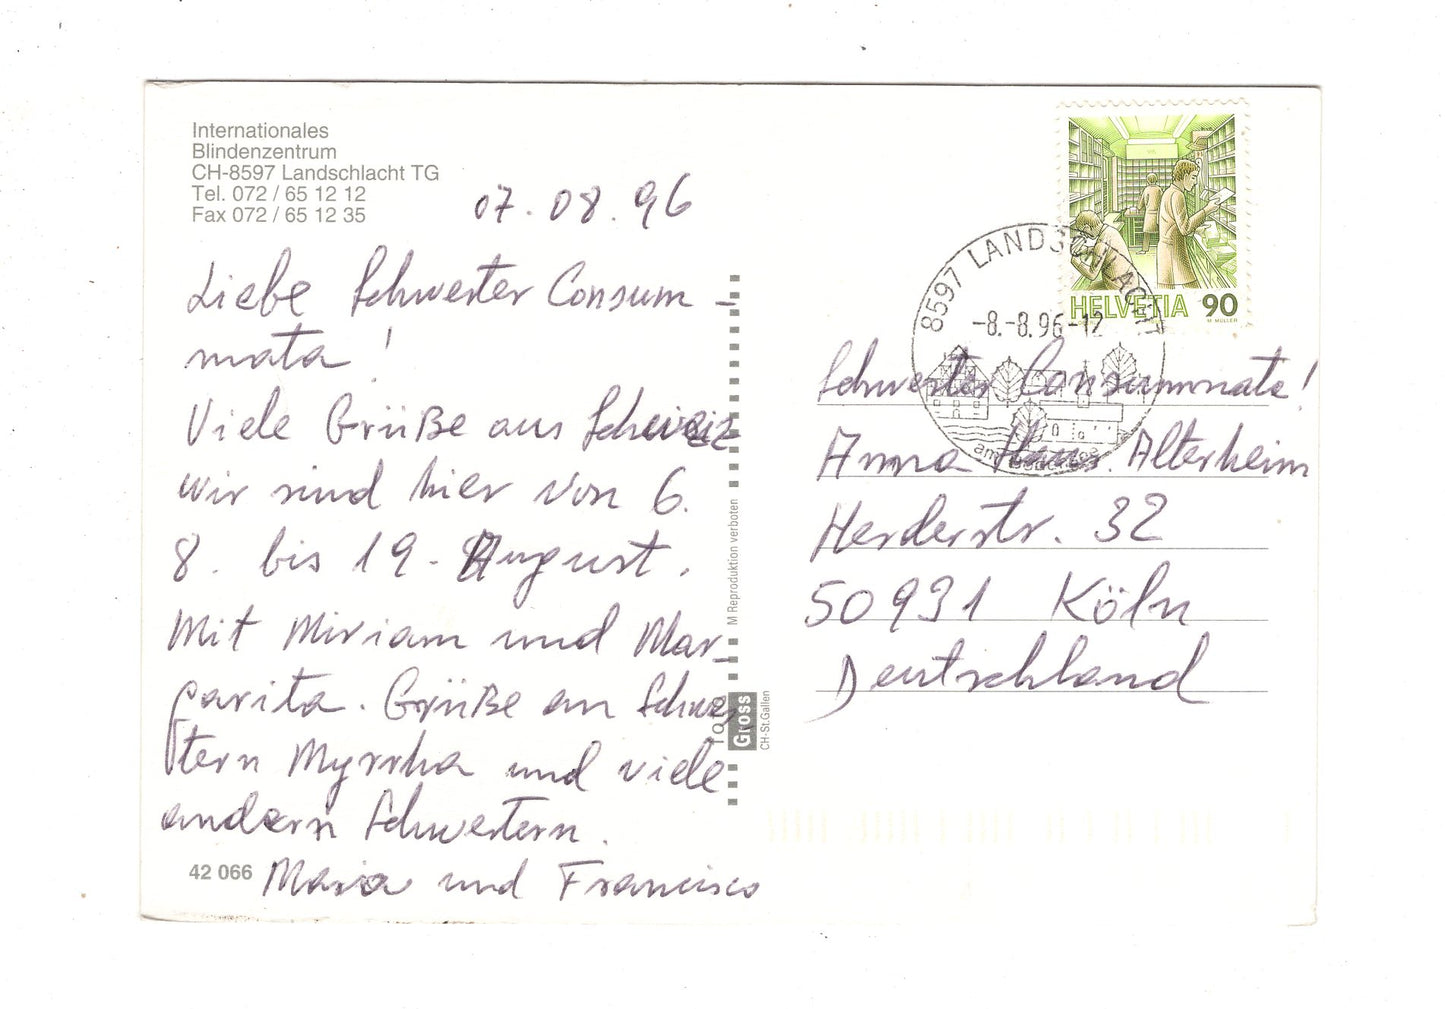 Internationales
Blindenzentrum
CH-8597 Landschlacht TG
Tel. 072 / 65 12 12
Fax 072 / 65 12 35
07.08.96
Liebe Schwester Consum-
mata!
Viele Grüße aus Schweiz
wir sind hier von 6.
8. bis 19. August.
Mit Miriam und Mar-
garita. Grüße an Schwes
tern Myrrha und viele
andern Schwestern.
Maria und Francisco
42 066
M Reproduktion verboten
TOP
Gross
CH-St.Gallen
HELVETIA 90
M MÜLLER
8597 LANDSCHLACHT
-8.-8.96-12
am Bodensee
Schwester Consummate!
Anna Haus. Alterheim
Herderstr. 32
50931 Köln
Deutschland